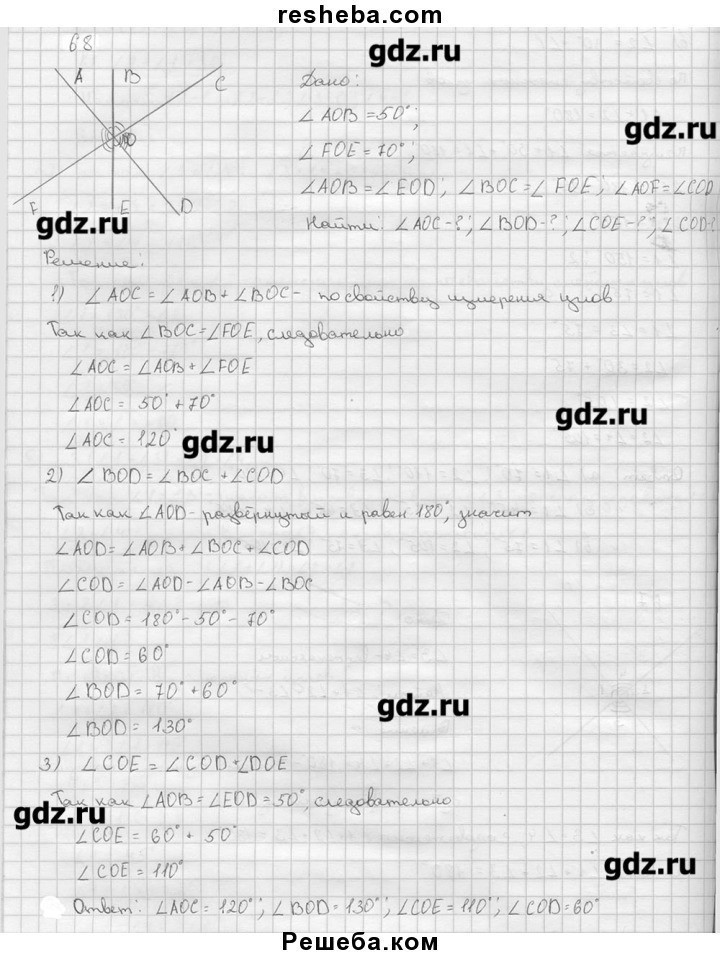 resheba.com
68
gdz.ru
A B C
Дано:
O
∠ AOB = 50°;
gdz.ru
∠ FOE = 70°;
∠AOB = ∠ EOD; ∠ BOC = ∠ FOE; ∠ AOF = ∠ COD
F E D
gdz.ru
Найти: ∠ AOC-?; ∠ BOD-?; ∠COE-?; ∠ COD-?
Решение:
1) ∠ AOC = ∠ AOB + ∠ BOC - по свойству измерения углов
Так как ∠ BOC = ∠ FOE, следовательно
∠ AOC = ∠ AOB + ∠ FOE
∠ AOC = 50° + 70°
gdz.ru
∠ AOC = 120°
gdz.ru
2) ∠ BOD = ∠ BOC + ∠ COD
Так как ∠ AOD - развёрнутый и равен 180°, значит
∠ AOD = ∠ AOB + ∠ BOC + ∠ COD
∠ COD = ∠ AOD - ∠ AOB - ∠ BOC
∠ COD = 180° - 50° - 70°
∠ COD = 60°
∠ BOD = 70° + 60°
gdz.ru
∠ BOD = 130°
3) ∠ COE = ∠ COD + ∠DOE
Так как ∠ AOB = ∠ EOD = 50°, следовательно
gdz.ru
∠ COE = 60° + 50°
∠ COE = 110°
gdz.ru
Ответ: ∠ AOC = 120°; ∠ BOD = 130°; ∠ COE = 110°; ∠ COD = 60°
Решеба.ком